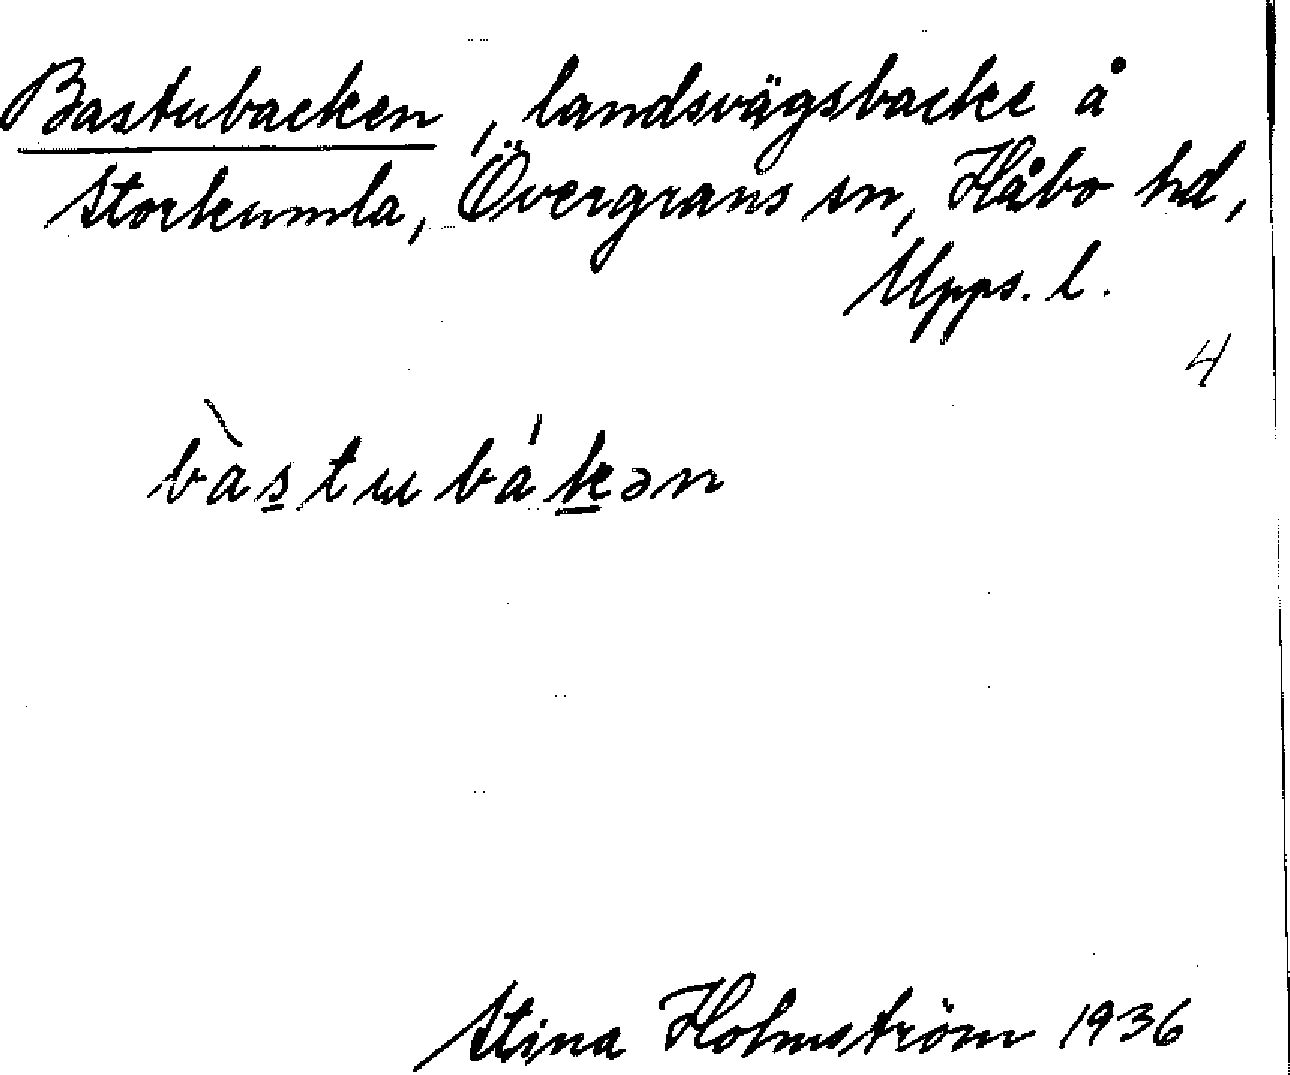 Bastubacken, landsvägsbacke å
Storkumla, Övergrans sn, Håbo hd,
Upps. l.
4
bàstɯbákən
Stina Holmström 1936